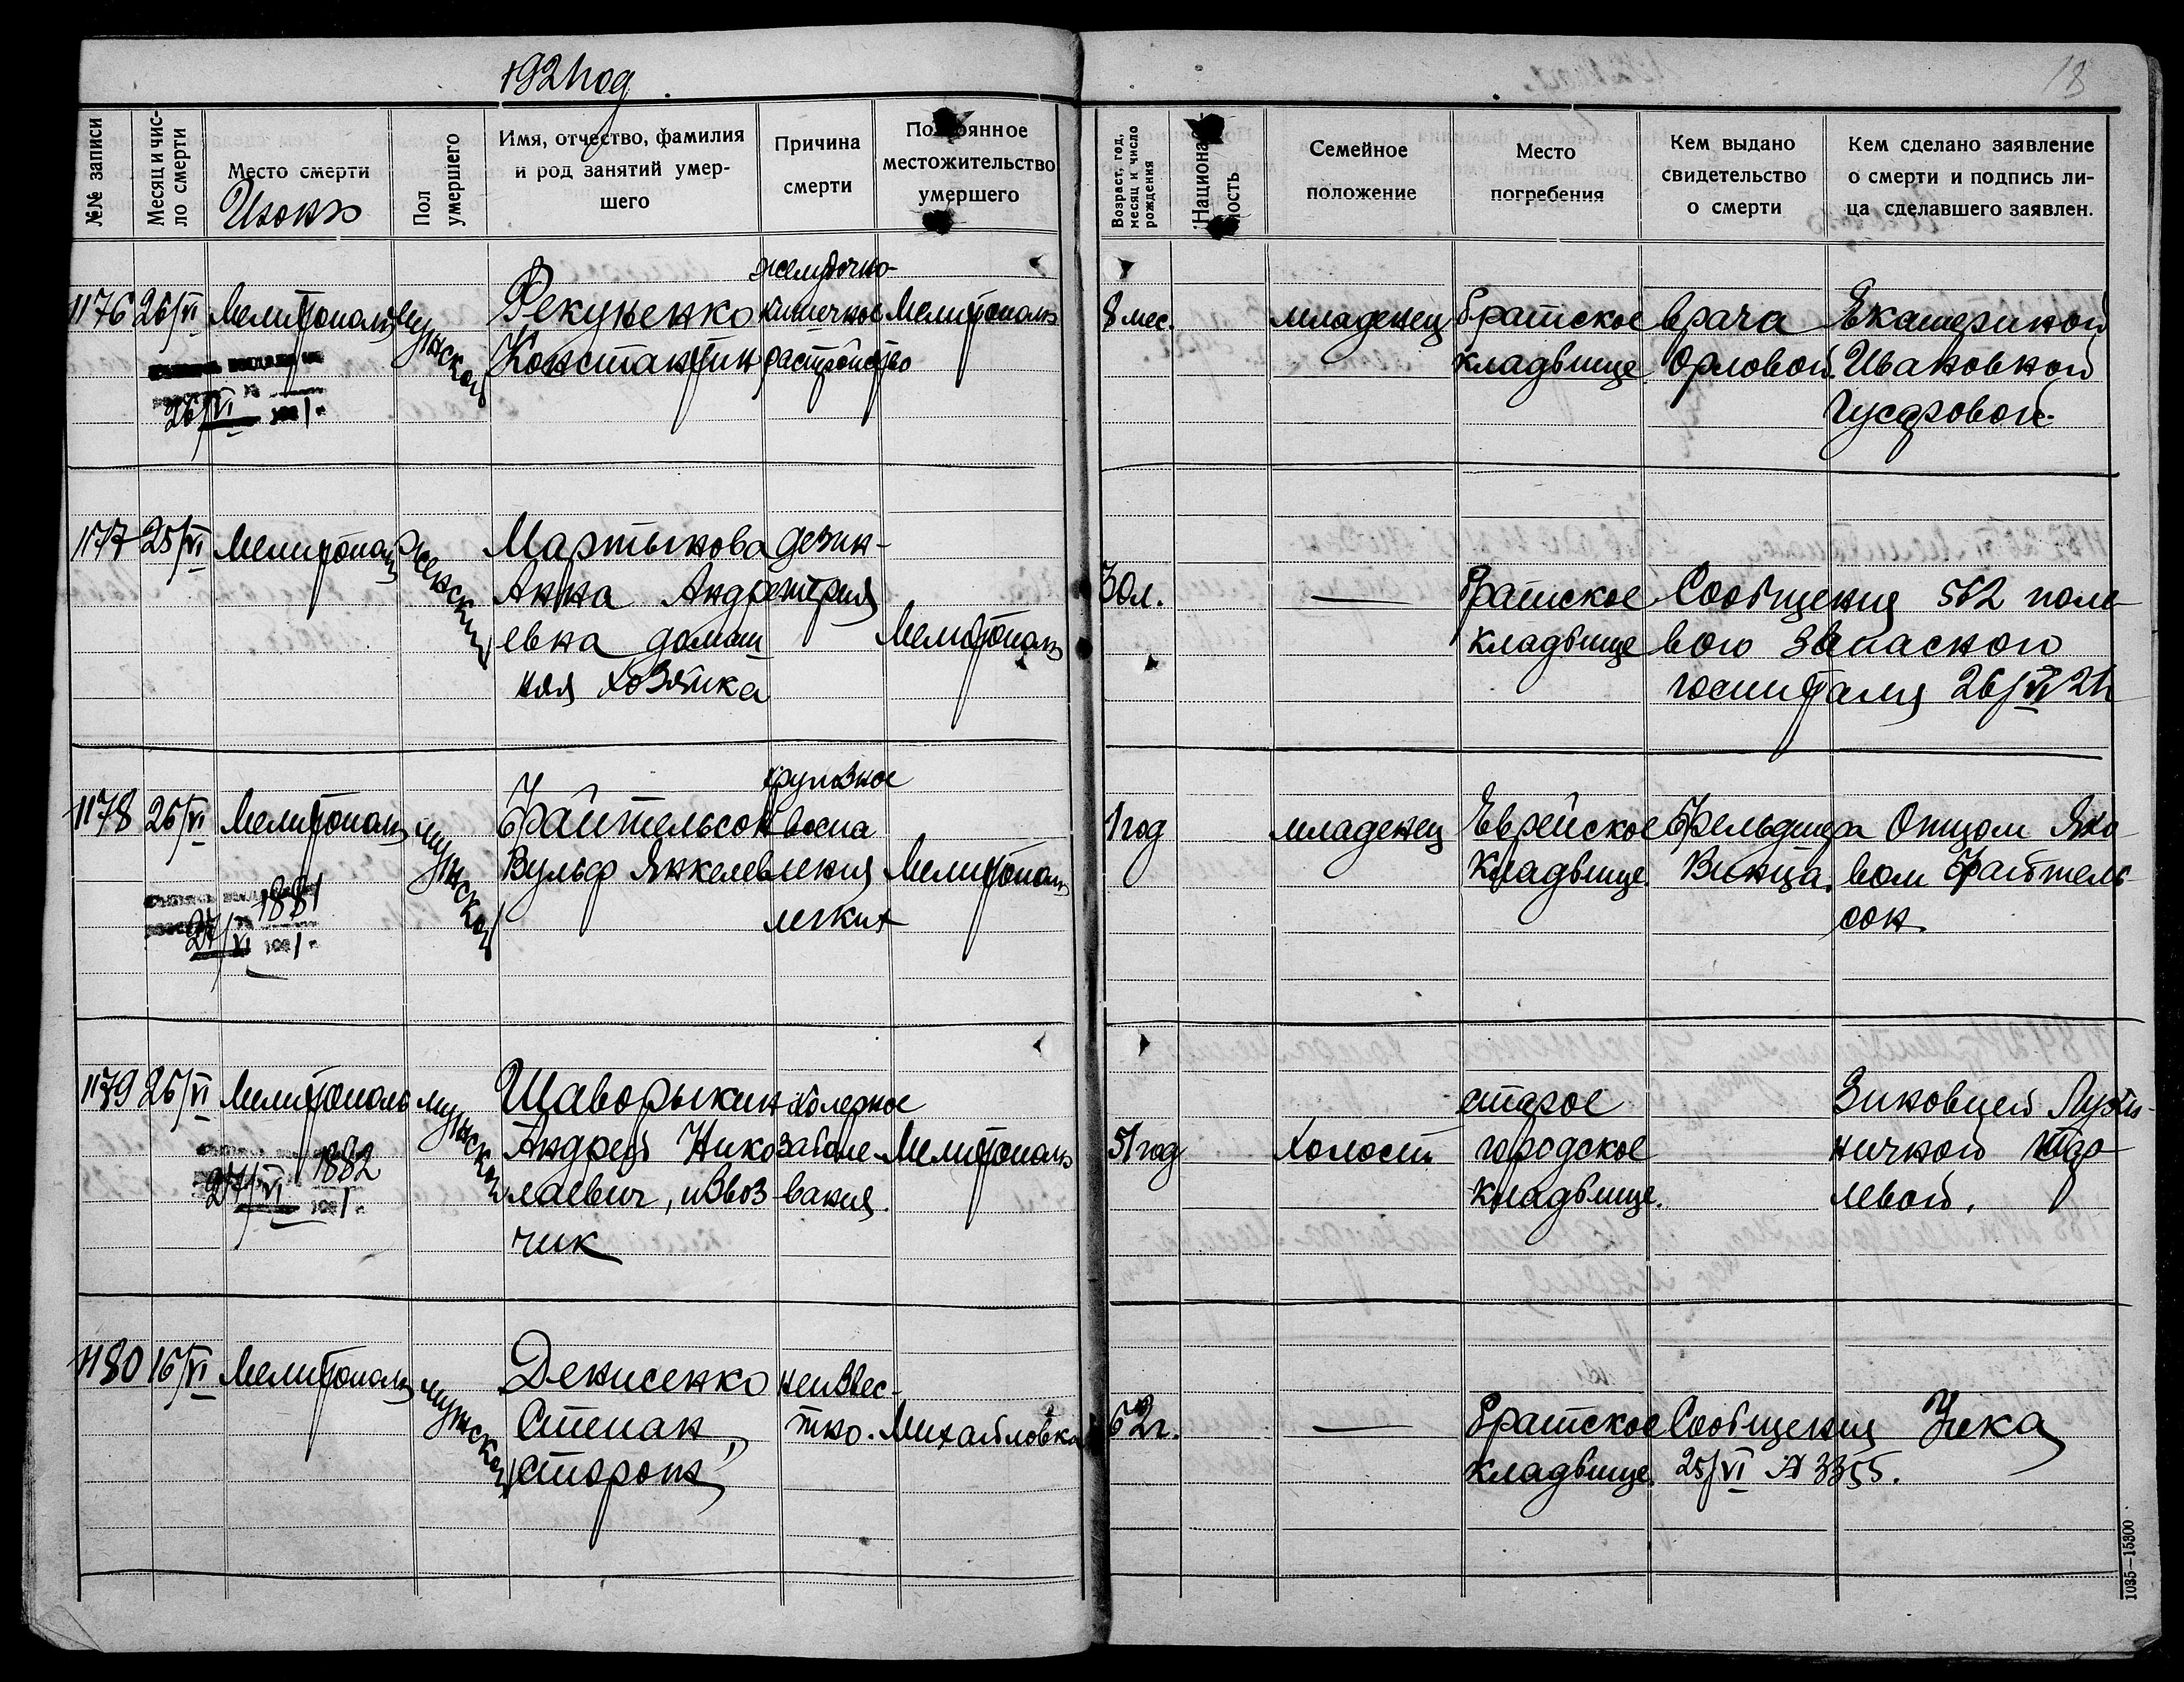 1921 год
18
№№ записи
Месяц и чис-
ло смерти
Место смерти
Июнь
Пол
умершего
Имя, отчество, фамилия
и род занятий умер-
шего
Причина
смерти
Постоянное
местожительство
умершего
Возраст, год,
месяц и число
рождения
Национальность
Семейное
положение
Место
погребения
Кем выдано
свидетельство
о смерти
Кем сделано заявление
о смерти и подпись ли-
ца сделавшего заявлен.
1176 26/VI Мелитополь мужской
26/VI 1921 г.
Фекуненко
Константин
желудочно-
кишечное
растройство
Мелитополь
8 мес.
младенец
Братское
кладбище
врача
Орловой.
Екатериной
Ивановной
Гусаровой.
1177 25/VI Мелитополь женский
Мартынова
Анна Андре
евна домаш
няя хозяйка
дезин-
терия
Мелитополь
30 л.
—
Братское
кладбище
Сообщения 562 поле
вого запасного
госпиталя 26/VI 21 г
1178 26/VI Мелитополь мужской
1881
27/VI 1921 г.
Файтельсон
Вульф Янкелев
крупозное
воспа
ления
легких
Мелитополь
1 год
младенец
Еврейское
кладбище.
Фельдшера
Винца.
Отцом Яко
вом Файтель
сон.
1179 26/VI Мелитополь мужской
1882
27/VI 1921 г.
Шаворыкин
Андрей Нико
лаевич, извоз
чик
холерное
заболе-
вания.
Мелитополь
51 год
холост
старое
городское
кладбище.
Зиновией
ничной
левой.
1180 16/VI Мелитополь мужской
Денисенко
Степан,
сторож
неизвес-
тно.
Михайловка
62 г.
—
Братское
кладбище.
Сообщения Учка
25/VI № 3355.
1035—15300